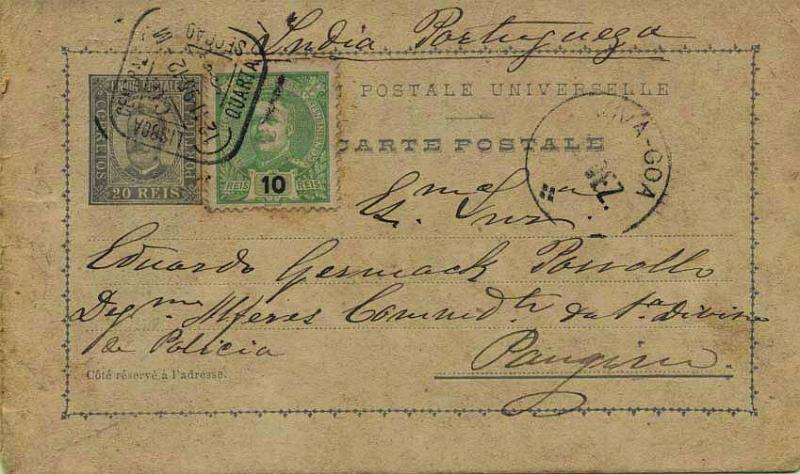 India Portugueza
POSTALE UNIVERSELLE
CARTE POSTALE
CORREIOS
20 REIS
REIS 10 REIS
LISBOA
QUARTA SECÇÃO
NOVA-GOA
Ex.mo Snr.
Eduardo Germack Possollo
Dig.mo Alferes Command.te da 1.a Divisão
de Policia
Pangim.
Côté réservé à l'adresse.